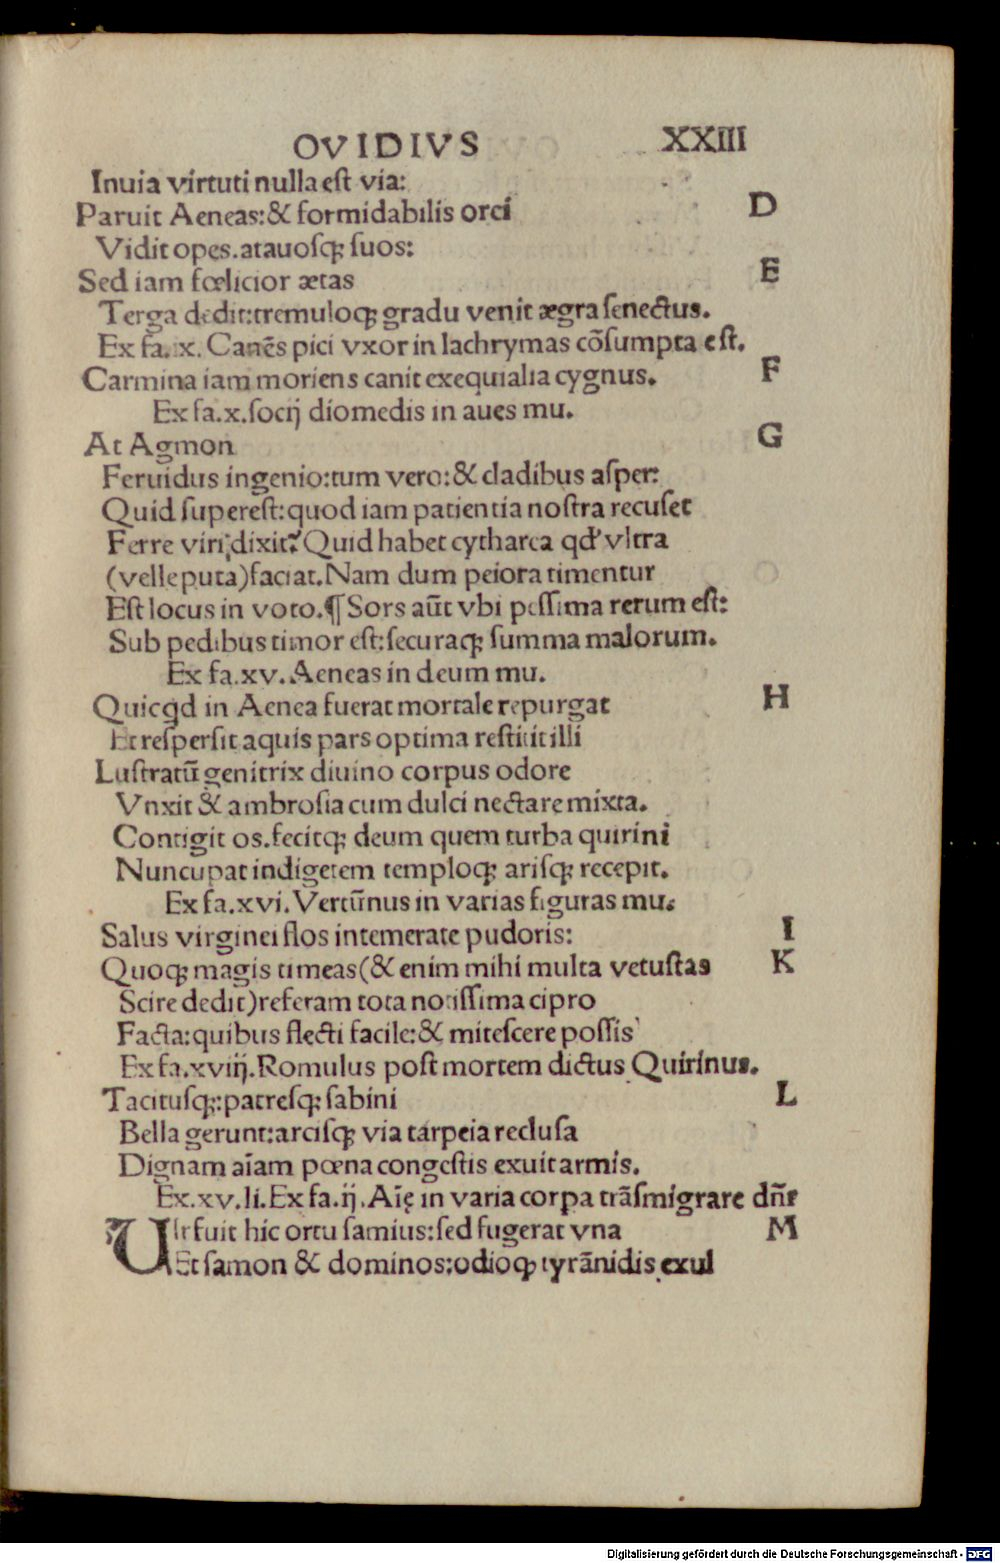 OVIDIVS XXIII
Inuia virtuti nulla est via:
Paruit Aeneas:& formidabilis orci D
Vidit opes.atauosq; suos:
Sed iam fœlicior ætas E
Terga dedit:tremuloq; gradu venit ægra senectus.
Ex fa. x. Canẽs pici vxor in lachrymas cõsumpta est.
Carmina iam moriens canit exequialia cygnus. F
Ex fa.x.socij diomedis in aues mu.
At Agmon G
Feruidus ingenio:tum vero:& cladibus asper:
Quid superest:quod iam patientia nostra recuset
Ferre viri;dixit? Quid habet cytharea qd' vltra
(velle puta)faciat.Nam dum peiora timentur
Est locus in voto.¶ Sors aũt vbi pessima rerum est:
Sub pedibus timor est:securaq; summa malorum.
Ex fa.xv.Aeneas in deum mu.
Quicqd in Aenea fuerat mortale repurgat H
Et respersit aquis pars optima restitit illi
Lustratũ genitrix diuino corpus odore
Vnxit & ambrosia cum dulci nectare mixta.
Contigit os.fecitq; deum quem turba quirini
Nuncupat indigetem temploq; arisq; recepit.
Ex fa.xvi.Vertũnus in varias figuras mu.
Salus virginei flos intemerate pudoris: I
Quoq; magis timeas(& enim mihi multa vetustas K
Scire dedit)referam tota notissima cipro
Facta:quibus flecti facile:& mitescere possis
Ex fa.xviij.Romulus post mortem dictus Quirinus.
Tacitusq;:patresq; sabini L
Bella gerunt:arcisq; via tarpeia reclusa
Dignam aĩam pœna congestis exuit armis.
Ex.xv.li.Ex fa.ij.Aĩę in varia corpa trãsmigrare dñr
VIr fuit hic ortu samius:sed fugerat vna M
Et samon & dominos:odioq; tyrãnidis exul
Digitalisierung gefördert durch die Deutsche Forschungsgemeinschaft - DFG